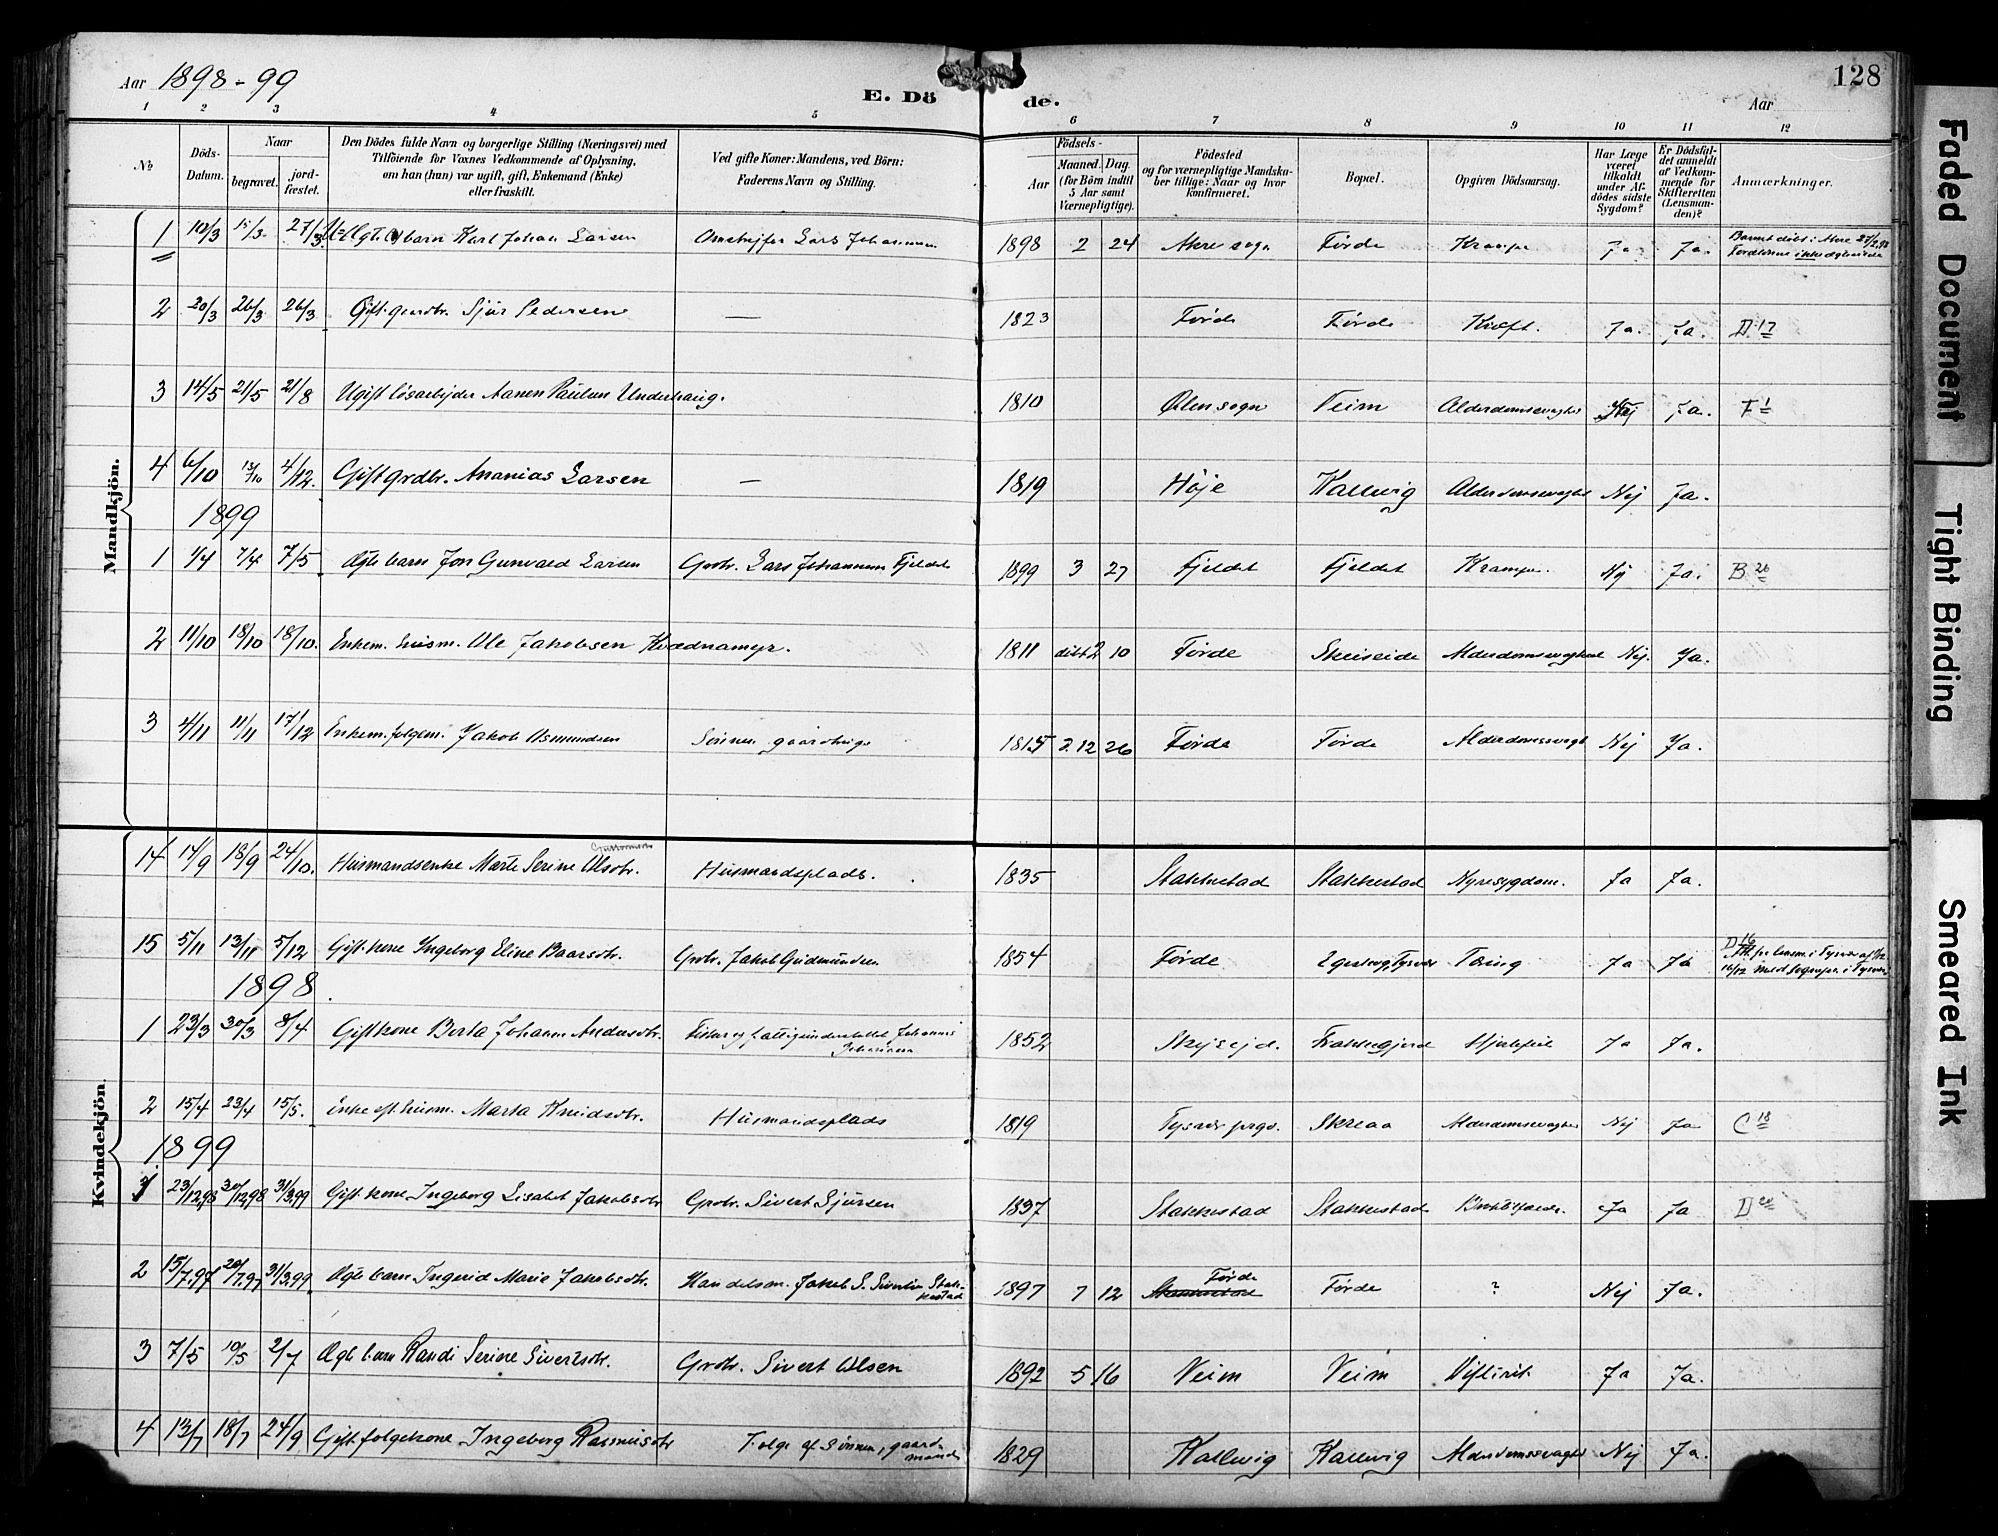 Aar 1898-99
E. Dö
de.
Aar
128
1 2 3 4 5 6 7 8 9 10 11 12
No
Döds-Datum.
Naar
begravet.
jord-fæstet.
Den Dödes fulde Navn og borgerlige Stilling (Næringsvei) med
Tilföiende for Voxnes Vedkommende af Oplysning,
om han (hun) var ugift, gift, Enkemand (Enke)
eller fraskilt.
Ved gifte Koner: Mandens, ved Börn:
Faderens Navn og Stilling.
Födsels-
Aar
Maaned. Dag.
(for Börn indtil
5 Aar samt
Værnepligtige).
Födested
og for værnepligtige Mandska-
ber tillige: Naar og hvor
konfirmeret.
Bopæl.
Opgiven Dödsaarsag.
Har Læge
været
tilkaldt
under Af-
dödes sidste
Sygdom?
Er Dödsfal-
det anmeldt
af Vedkom-
mende for
Skifteretten
(Lensman-
den)?
Anmærkninger.
Mandkjön.
1 10/3 15/3 27/3 barn Karl Johan Larsen Lars Johannesen 1898 2 24 Akre sogn Førde Krampe Ja Ja. Barnet døbt i Akre 27/2 98
Forældrene ikke
2 20/3 26/3 26/3 Gift gaardbr. Sjur Pedersen — 1823 Førde Førde Kræft. Ja. Ja. D. 17
3 14/5 21/5 21/8 Ugift løsarbejder Aanen Paulsen Underhaug. 1810 Ølen sogn Veim Alderdomssvaghed Nej Ja. F 1
4 6/10 13/10 4/12. Gift grdbr. Ananias Larsen — 1819 Høje Kallevig Alderdomssvaghed Nej Ja.
1899
1 1/4 7/4 7/5 Ægte barn Jon Gunvald Larsen Grdbr. Lars Johannesen Fjeldet 1899 3 27 Fjeldet Fjeldet Krampe. Nej Ja. B 26
2 11/10 18/10 18/10. Enkem. husm. Ole Jakobsen Kvædnamyr. 1811 døbt 2 10 Førde Skeiseide Alderdomssvaghed Nej. Ja.
3 4/11 11/11 17/12 Enkem. folgem. Jakob Asmundsen Sønnen gaardbruger 1815 D. 12 26 Førde Førde Alderdomssvagh Nej Ja.
Kvindekjön.
14 14/9 18/9 24/10. Husmandsenke Marte Serine Olsdtr. Husmandsplads. 1835 Stakkestad Stakkestad Nyresygdom. Ja Ja.
15 5/11 13/11 5/12 Gift kone Ingeborg Eline Baarsdtr. Grdbr. Jakob Gudmundsen 1854 Førde Tysvær Tæring Ja Ja D 16
1898
1 23/3 30/3 8/4 Gift kone Berta Johanne Andersdtr. Fisker og fattigunderstøttet Johannes
Johannesen 1852 Skejsejd. Frakkagjerd Hjertefeil Ja Ja.
2 15/4 23/4 15/5. Enke eft. husm. Marta Knudsdtr. Husmandsplads 1819 Tysvær prgd. Skreaa Alderdomssvaghed Nej Ja C 18
1899
1 23/12 98 30/12 98 31/3 99 Gift kone Ingeborg Lisabet Jakobsdtr Grdbr. Sivert Sjursen 1837 Stakkestad Stakkestad Ja Ja D 20
2 15/7 97 20/7 97 31/3 99 Ægte barn Ingerid Marie Jakobsdtr. Handelsm. Jakob S. Stak-
kestad 1897 7 12 Førde Førde ? Nej Ja.
3 7/5 10/5 2/7 Ægte barn Randi Serine Sivertsdtr. Grdbr. Sivert Olsen 1892 5 16 Veim Veim Difterit. Ja Ja.
4 13/7 18/7 24/9 Gift folgekone Ingeborg Rasmusdtr Folge af Sønnen, gaard-
mand 1829 Kallevig Kallevig Alderdomssvaghed Nej Ja.
Faded Document
Tight Binding
Smeared Ink